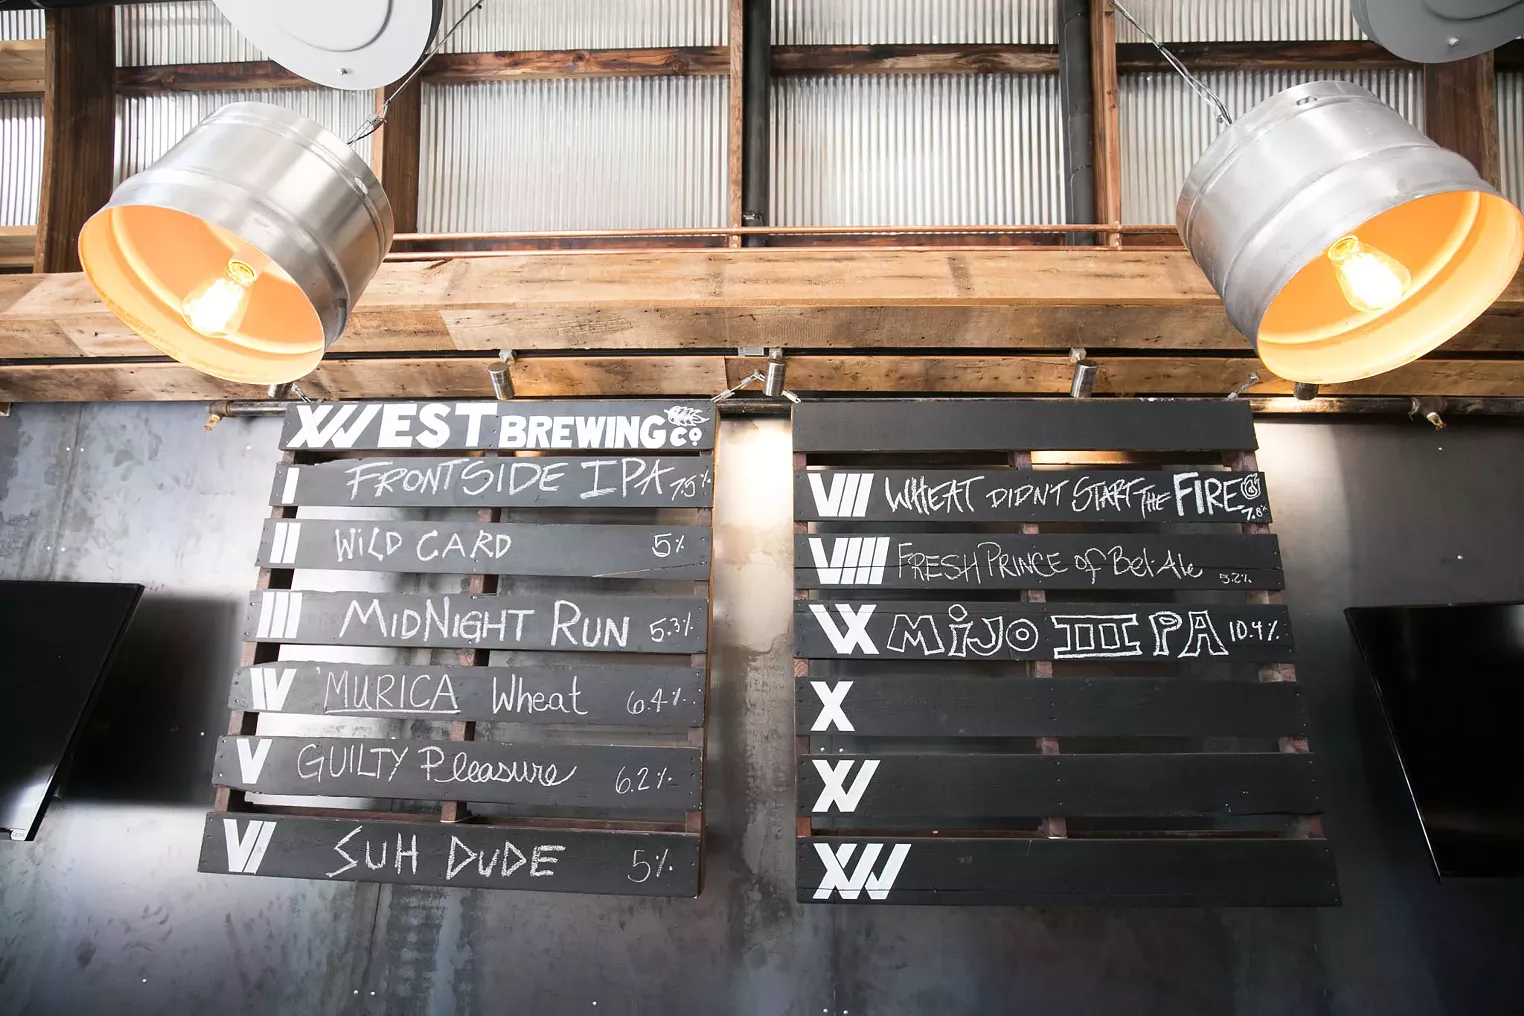 XWEST BREWING CO
I FRONTSIDE IPA 7.5%
II WILD CARD 5%
III MIDNIGHT RUN 5.3%
IV 'MURICA Wheat 6.4%
V GUILTY Pleasure 6.2%
VI SUH DUDE 5%
VII WHEAT DIDN'T START THE FIRE 7.8%
VIII FRESH PRINCE OF Bel-Ale 5.2%
IX MiJo IIIPA 10.4%
X
XI
XII